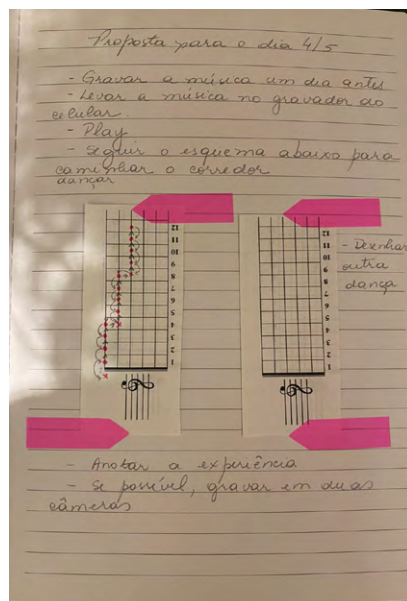 Proposta para o dia 4/5
- Gravar a música um dia antes
- Levar a música no gravador do
celular.
- Play
- Seguir o esquema abaixo para
caminhar o corredor
dançar
12
11
10
9
8
7
6
5
4
3
2
1
12
11
10
9
8
7
6
5
4
3
2
1
- Desenhar
outra
dança
- Anotar a experiência
- Se possível, gravar em duas
câmeras